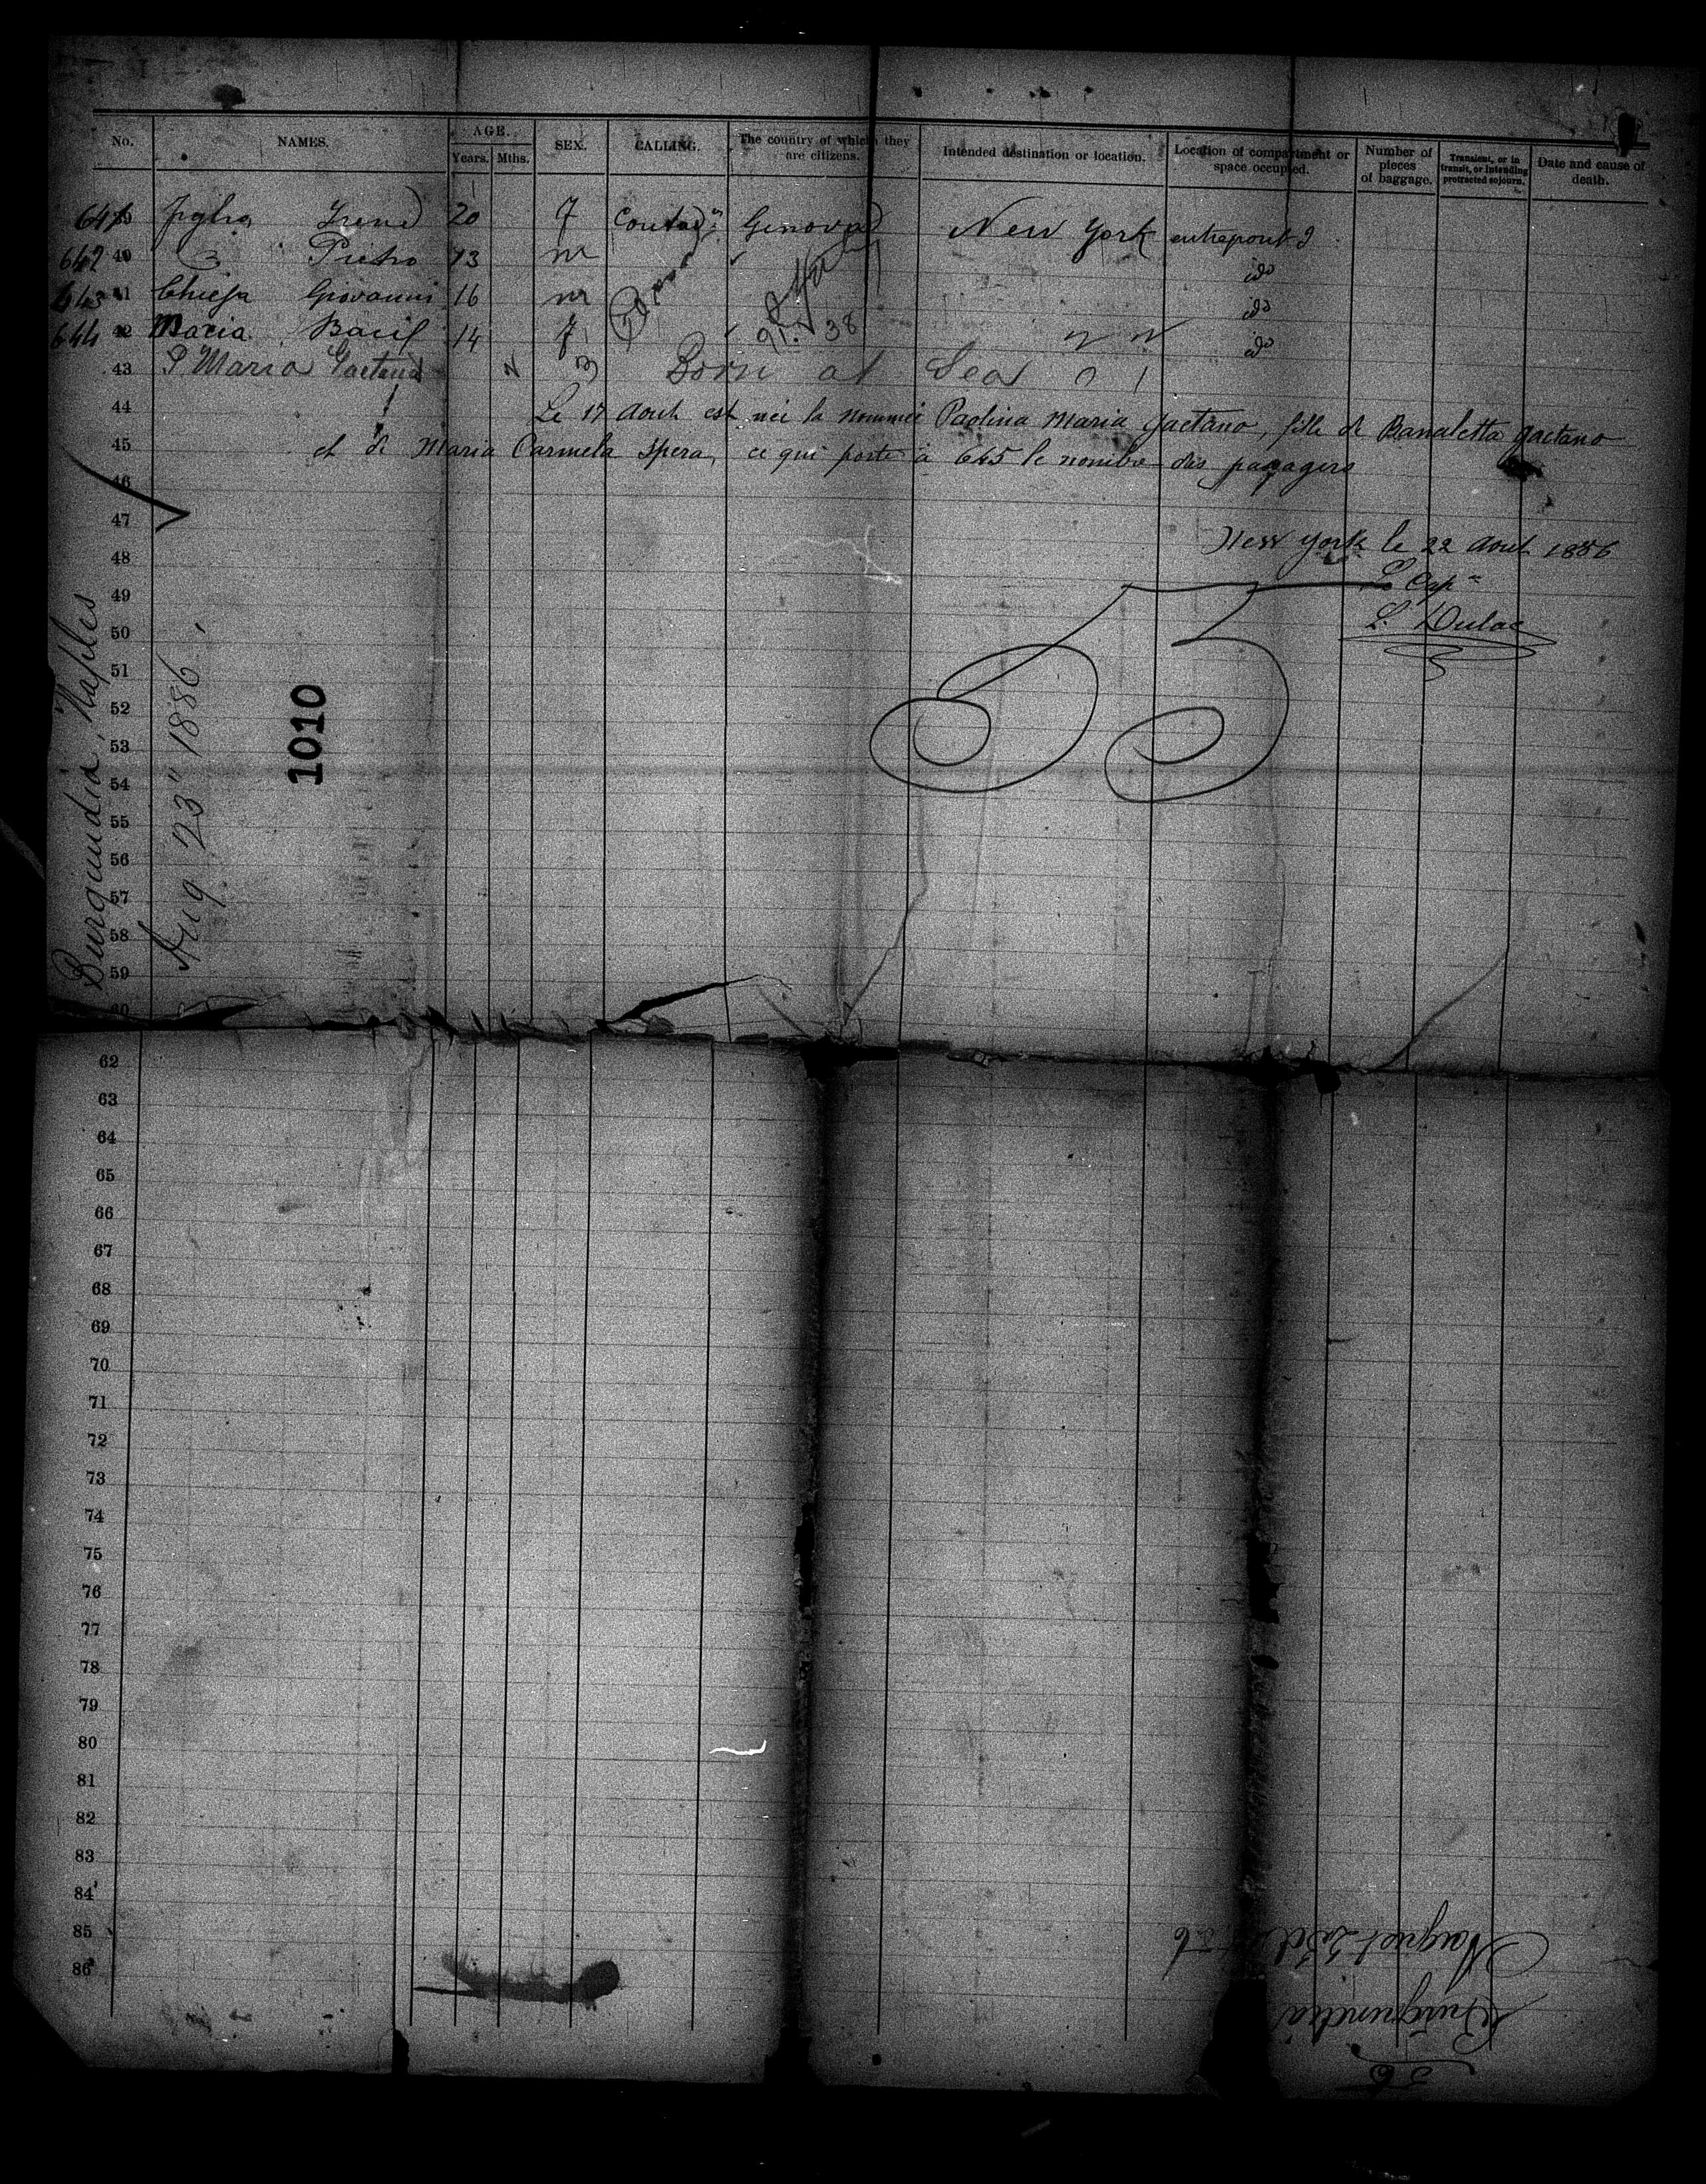 No. NAMES. AGE. Years. Mths. SEX. CALLING. The country of which they are citizens. Intended destination or location. Location of compartment or space occupied. Number of pieces of baggage. Transient, or in transit, or intending protracted sojourn. Date and cause of death.
641 Irene 20 f Genova New York entrepont
642 40 Pietro 13 m ido
643 41 Chiesa Giovanni 16 m ido
644 42 Maria 14 f 91. 38 ido
43 P Maria Gaetana Born at Sea
44 Le 17 Aout est née la nommée Paolina Maria Gaetano, fille de Banaletta Gaetano
45 et de Maria Carmela Spera, ce qui porte à 645 le nombre des passagers
46
47 New York le 22 Aout 1886
48 Le Cap
49 L. Dulac
50
51
52
53
54
55
56
57
58
59
60
Burgundia, Naples
Aug 23" 1886
1010
62
63
64
65
66
67
68
69
70
71
72
73
74
75
76
77
78
79
80
81
82
83
84
85
86
56
Burgundia
August 23d